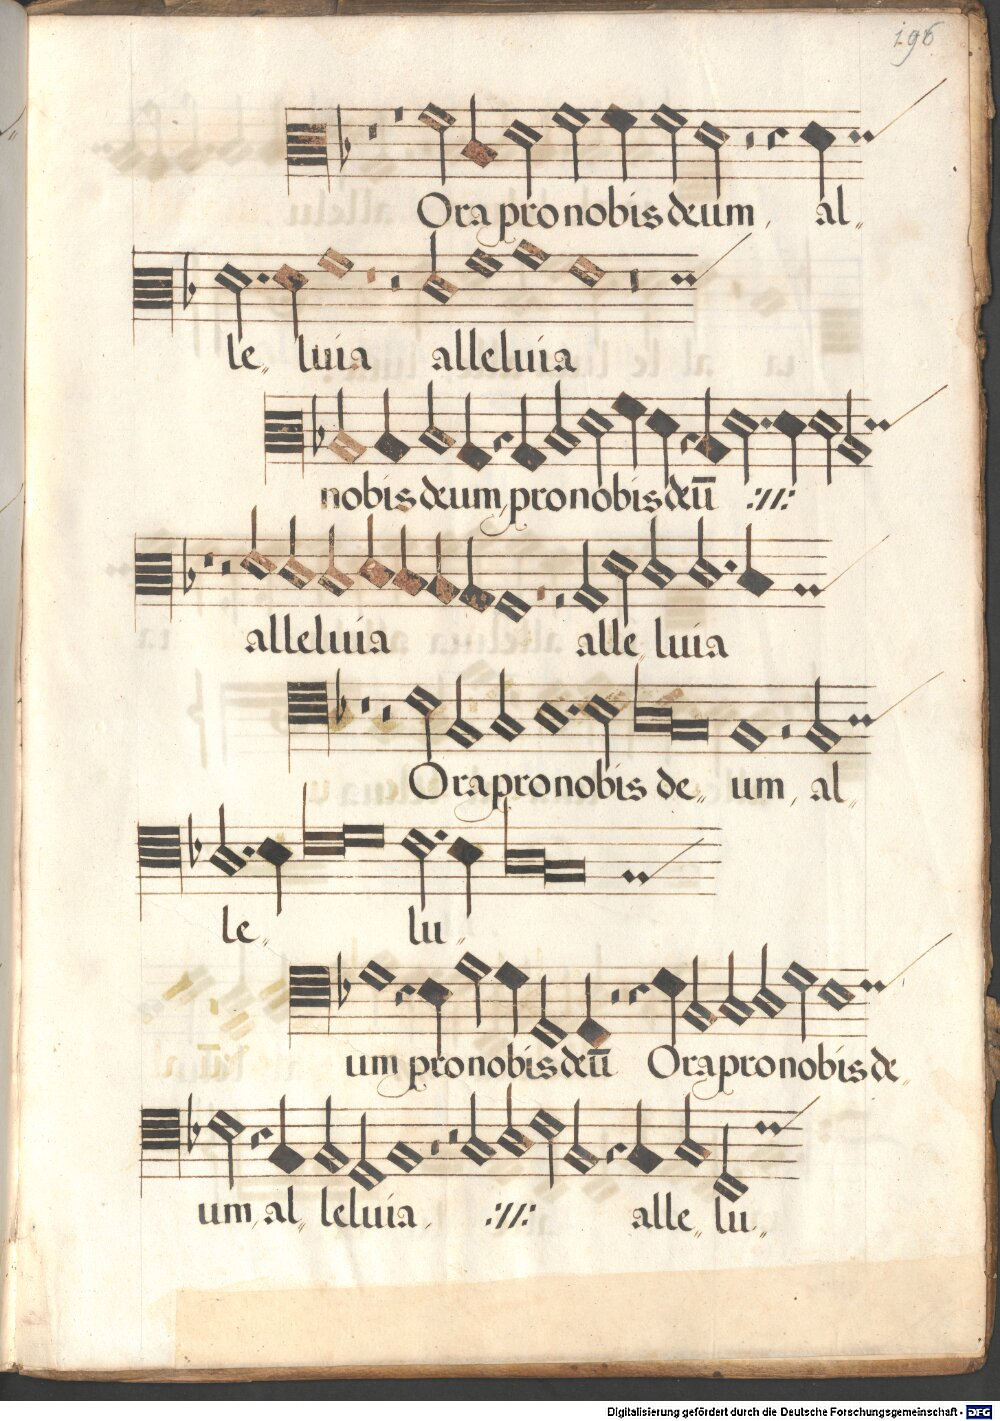 196
Ora pro nobis deum, al„
le„ luia alleluia
nobis deum, pro nobis deū ://:
alleluia alle„ luia
Ora pro nobis de„ um, al„
le„ lu„
um pro nobis deū Ora pro nobis de„
um, al„ leluia, ://: alle„ lu„
Digitalisierung gefördert durch die Deutsche Forschungsgemeinschaft - DFG